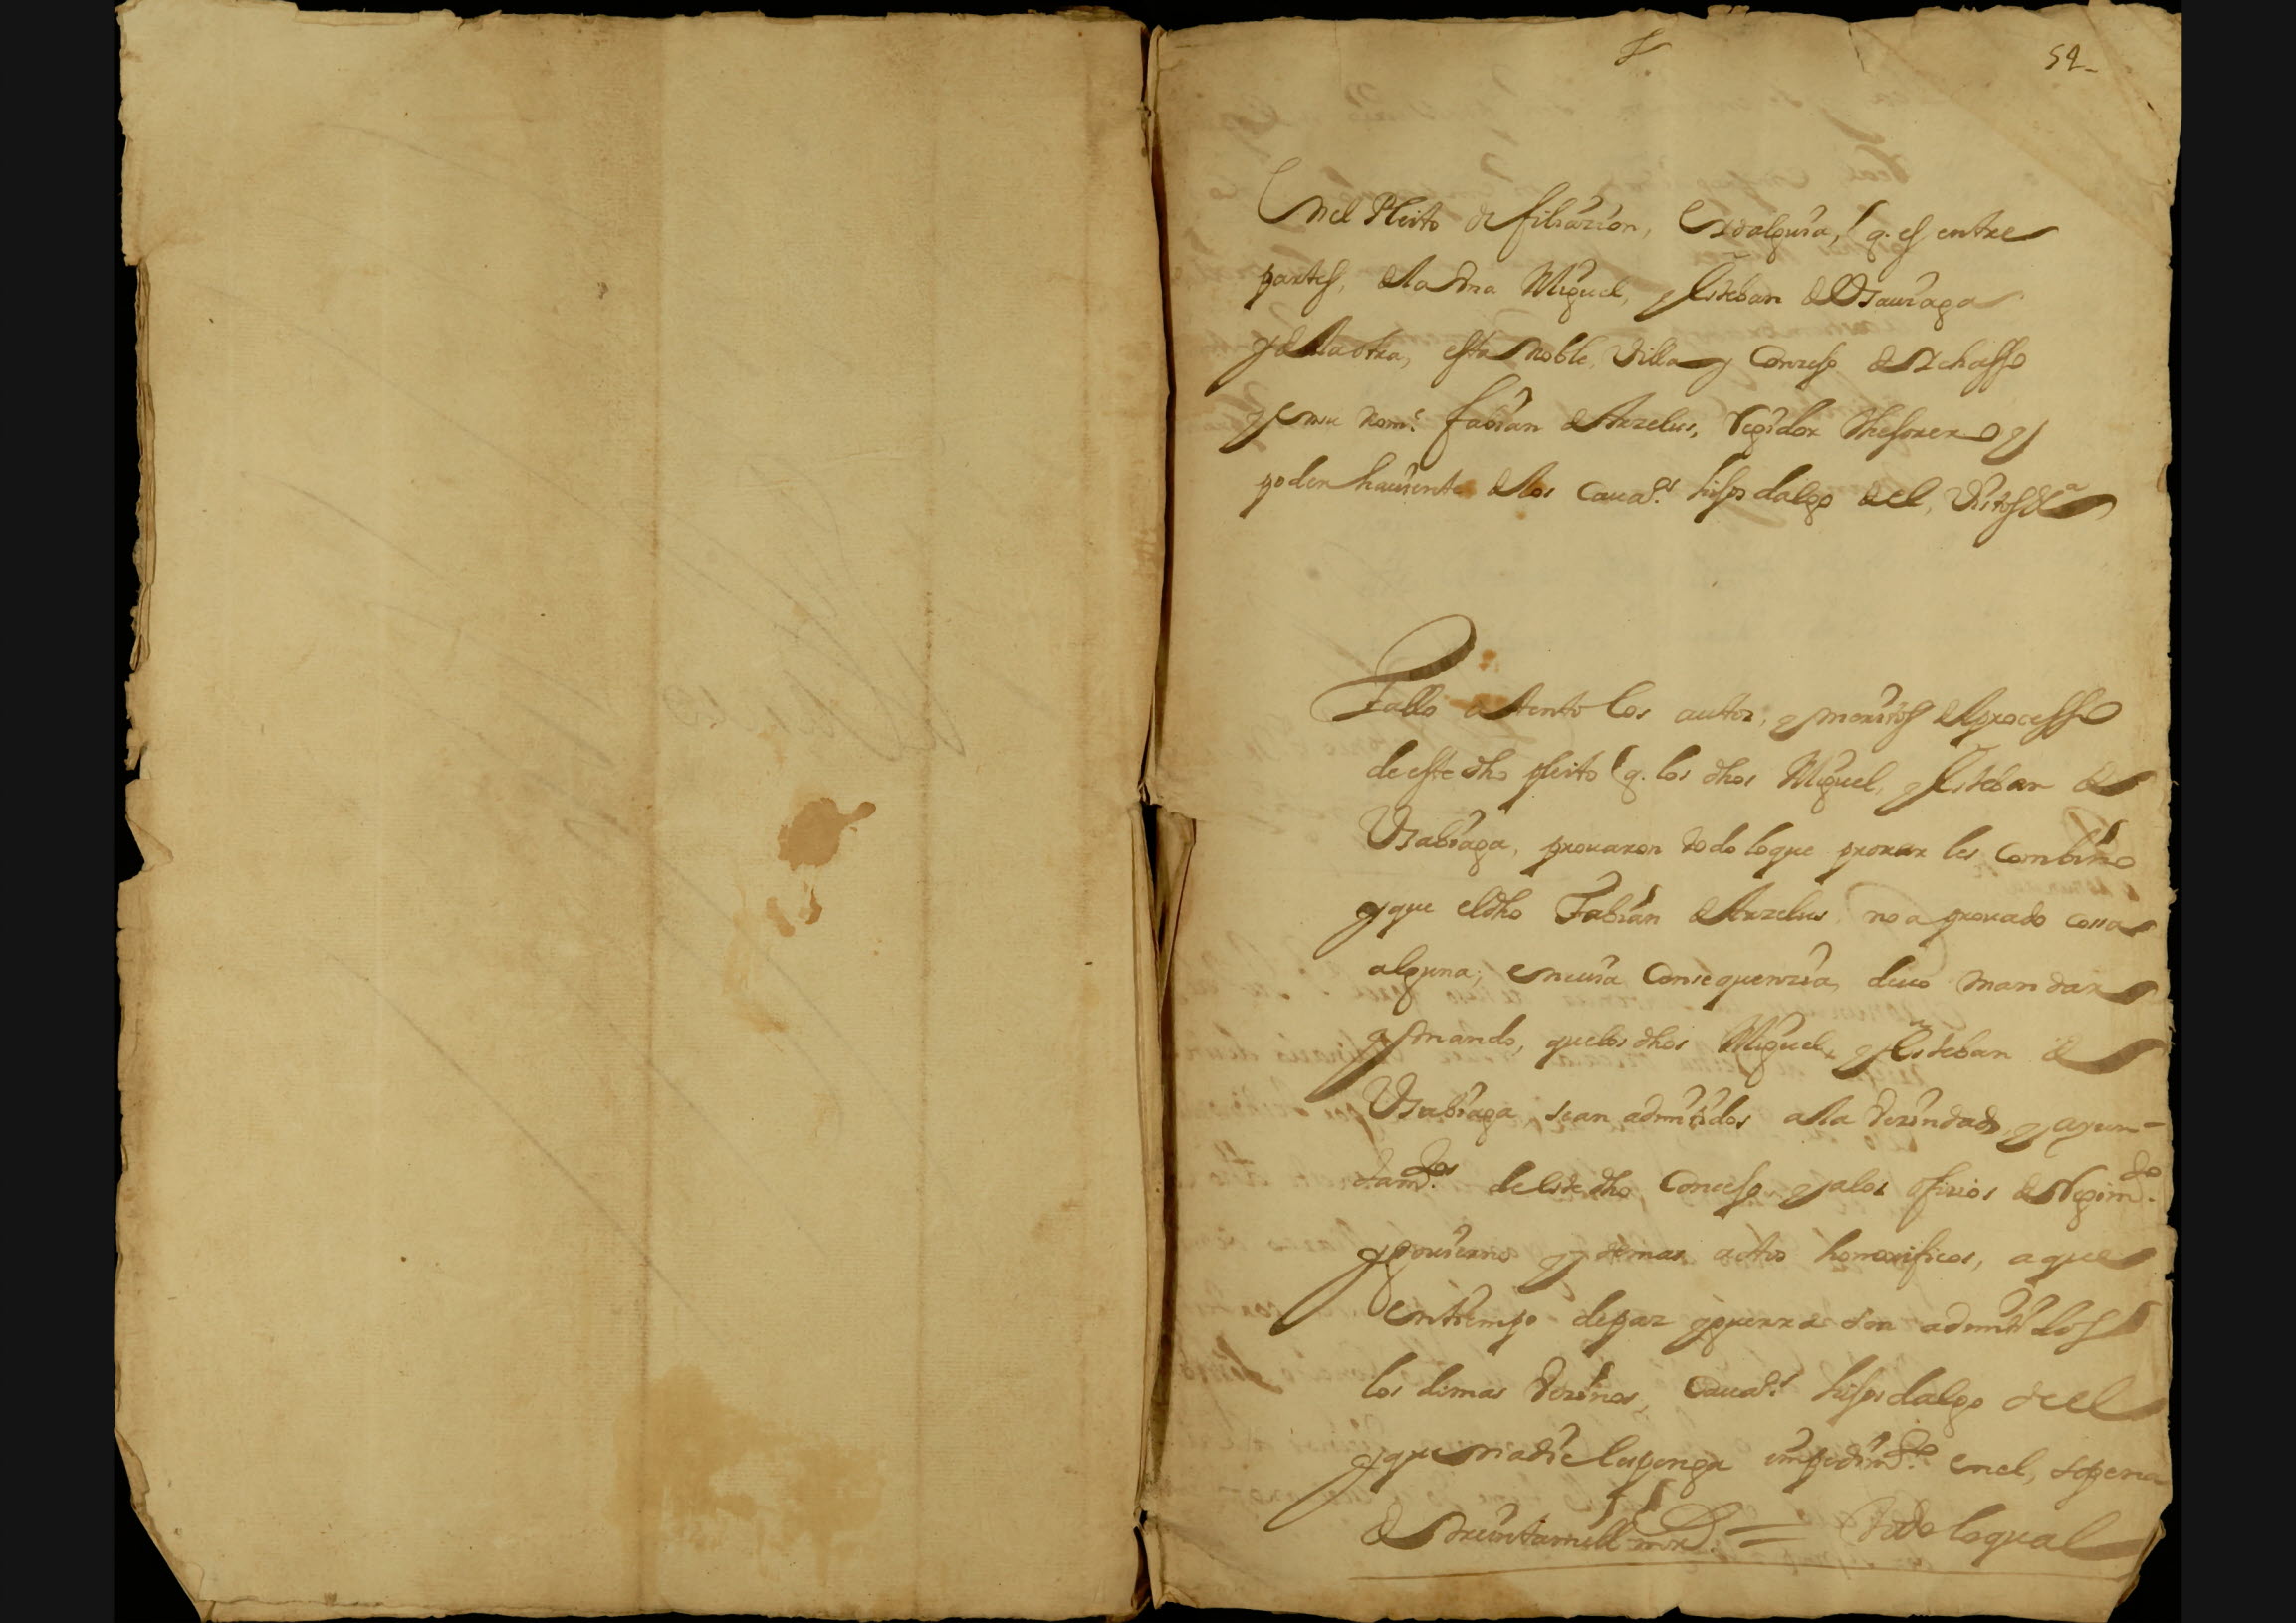 54
En el Pleito de filiazion, E ydalguia, q. es entre
partes, de la vna Miguel, y Esteban de Vsauiaga
y de la otra, esta Noble Villa y Conzejo de
y en su nom.e fabian de Arzelus, Regidor thesorero y
poder hauiente de los caua.s hijos dalgo de el, Vistos &a
Fallo atento los autos, y meritos del processo
de este dho pleito q. los dhos Miguel, y Esteban de
Vsabiaga, prouaron todo lo que prouar les combino
y que el dho Fabian de Arzelus no a prouado cossa
alguna, en cuia Consequenzia, deuo mandar
y mando, que los dhos Miguel, y Esteban de
Vsabiaga, sean admitidos a la Vezindad, y ayun-
tam.tos de este dho Concejo y a los ofizios de Regim.to
y gouierno y demas actos honorificos, a que
en tiempo de paz y guerra son admitidos
los demas Vezinos, Caua.s hijos dalgo de el
y que nadie les ponga impedim.to en el, so pena
de treinta mill mrs. = Todo lo qual